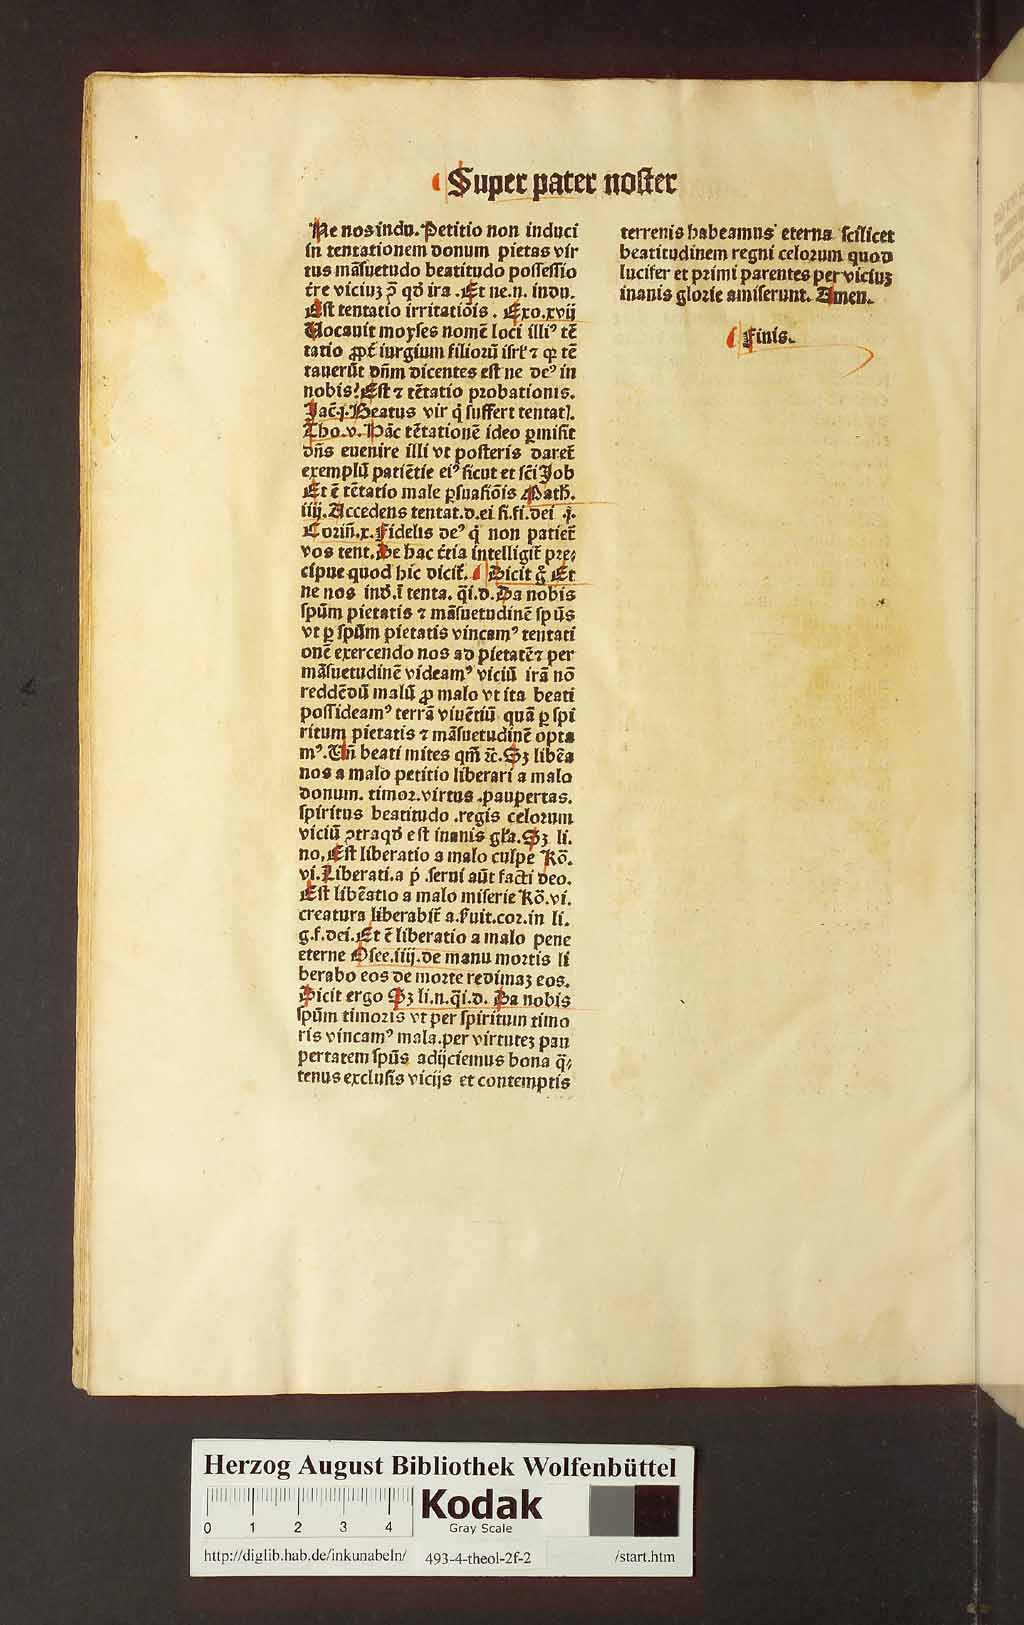 Super pater noster
Ne nos indu. Petitio non induci
in tentationem donum pietas vir
tus mãsuetudo beatitudo possessio
t̃re viciuȝ ꝯ̃ qđ ira .Et ne.n. indu.
Est tentatio irritatiõis . Exo.xvij
Uocauit moyses nomẽ loci illiꝰ tẽ
tatio ꝓpt̃ iurgium filiorũ isrł ⁊ qꝛ tẽ
tauerũt dñm dicentes est ne deꝰ in
nobis? Est ⁊ tẽtatio probationis.
Jac̃.j. Beatus vir q̇ suffert tentatȷ̃.
Tho.v. Hãc tẽtationẽ ideo ꝑmisit
dñs euenire illi vt posteris daret̃
exemplũ patiẽtie eiꝰ sicut et sc̃i Job
Et ẽ tẽtatio male ꝑsuasiõis Math̃.
iiij. Accedens tentat.d.ei si.fi.dei .j.
Corin̄.x. Fidelis deꝰ q̇ non patiet̃
vos tent. De hac t̃tia intelligit̃ pre⸗
cipue quod hic dicit̃. Dicit g̊ Et
ne nos ind̃.ĩ tenta. q̃i.d. Da nobis
spũm pietatis ⁊ mãsuetudinẽ spũs
vt ꝑ spũm pietatis vincamꝰ tentati
onẽ exercendo nos ad pietatẽ ⁊ per
mãsuetudinẽ videamꝰ viciũ irã nõ
reddẽdũ malũ ꝓ malo vt ita beati
possideamꝰ terrã viuẽtiũ quã ꝑ spi
ritum pietatis ⁊ mãsuetudinẽ opta
mꝰ. Un̄ beati mites qm̃ ⁊c̃. Sȝ libẽa
nos a malo petitio liberari a malo
donum. timor.virtus .paupertas.
spiritus beatitudo .regis celorum
viciũ ꝯtra qđ est inanis gl̃a. Sȝ li.
no, Est liberatio a malo culpe Rõ.
vi. Liberati.a p̃ .serui aũt facti deo.
Est libẽatio a malo miserie Rõ.vi.
creatura liberabit̃ a.s̃uit.cor.in li.
g.f.dei. Et ẽ liberatio a malo pene
eterne Osee.iiij.de manu mortis li
berabo eos de morte redimaȝ eos.
Dicit ergo Sȝ li.n.q̃i.d. Da nobis
spũm timoris vt per spiritum timo
ris vincamꝰ mala.per virtuteȝ pau
pertatem spũs adijciemus bona q̃⸗
tenus exclusis vicijs et contemptis
terrenis habeamus eterna scilicet
beatitudinem regni celorum quod
lucifer et primi parentes per viciuȝ
inanis glorie amiserunt. Amen.
Finis.
Herzog August Bibliothek Wolfenbüttel
Kodak
Gray Scale
0 1 2 3 4
http://diglib.hab.de/inkunabeln/ 493-4-theol-2f-2 /start.htm